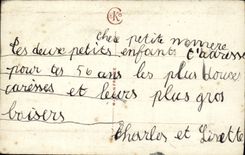 chere petite memere
Les deux petits enfants t'adresse
pour tes 56 ans les plus douces
caresses et leurs plus gros
baisers
Charles et Ginette